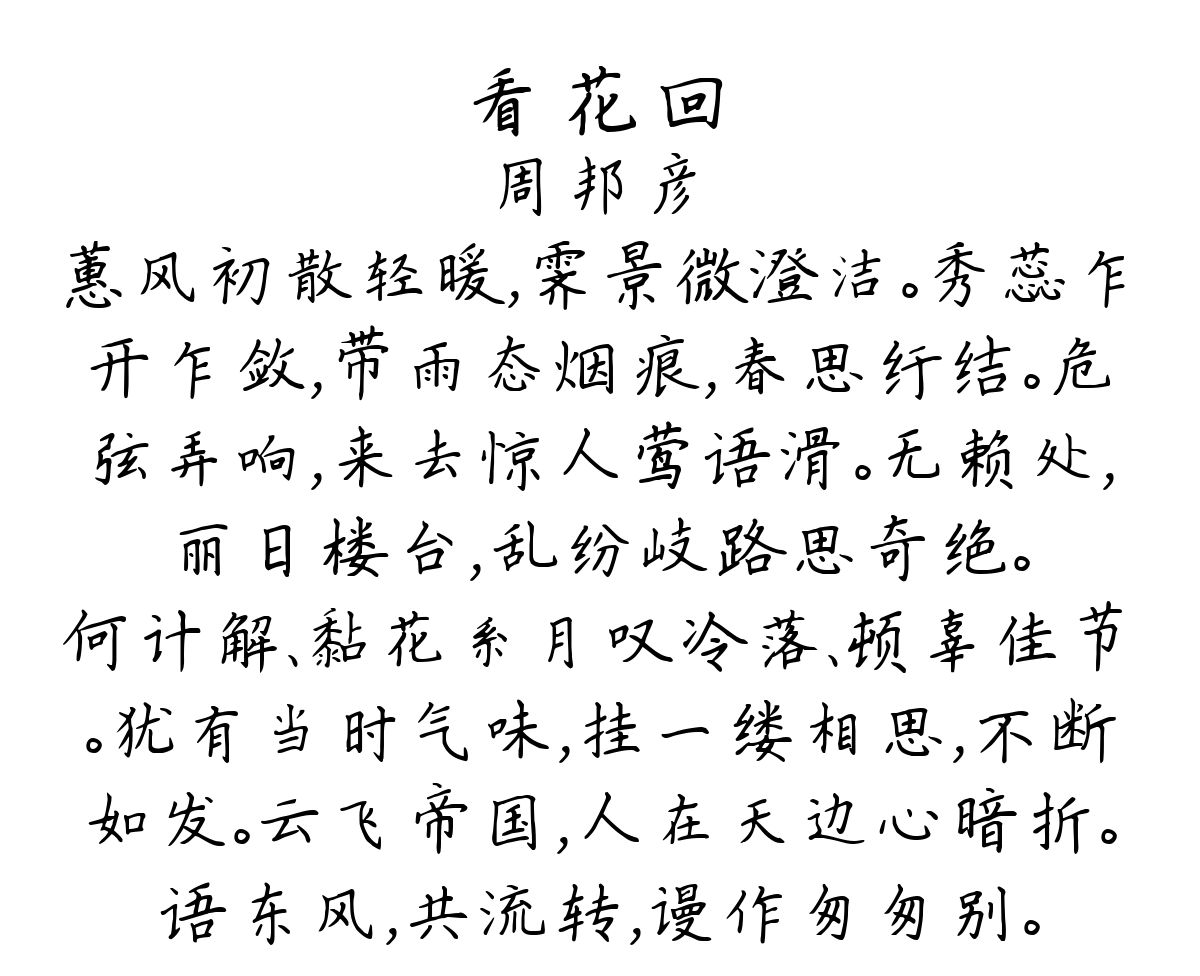 看花回
周邦彦
蕙风初散轻暖,霁景微澄洁。秀蕊乍
开乍敛,带雨态烟痕,春思纡结。危
弦弄响,来去惊人莺语滑。无赖处,
丽日楼台,乱纷岐路思奇绝。
何计解、黏花系月叹冷落、顿辜佳节
。犹有当时气味,挂一缕相思,不断
如发。云飞帝国,人在天边心暗折。
语东风,共流转,谩作匆匆别。